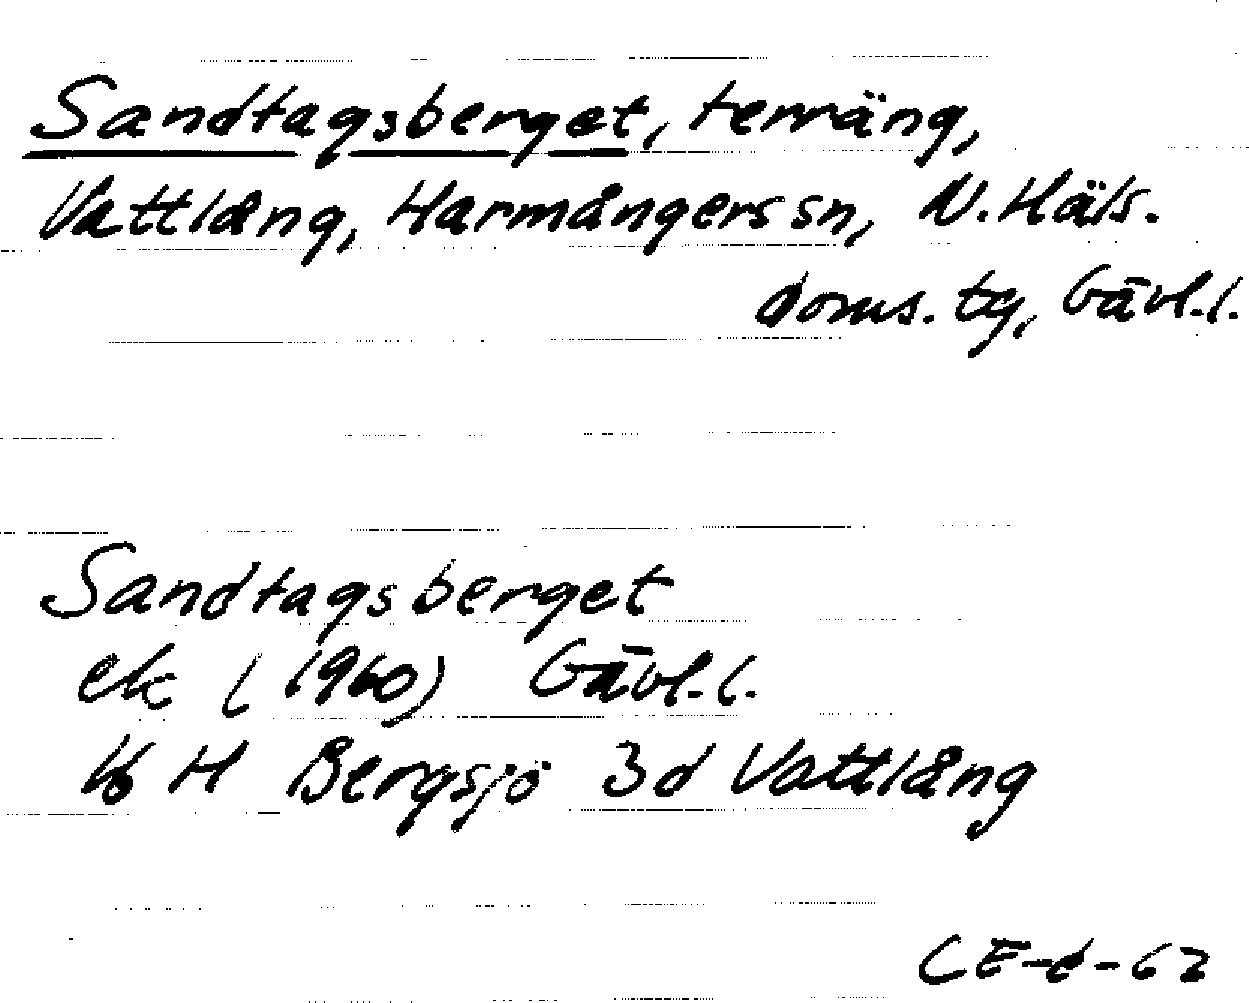 Sandtagsberget, terräng,
Vattlång, Harmångers sn, N. Häls.
doms. tg, Gävl. l.
Sandtagsberget
ek (1960) Gävl. l.
16 H Bergsjö 3d Vattlång
CE-d-62